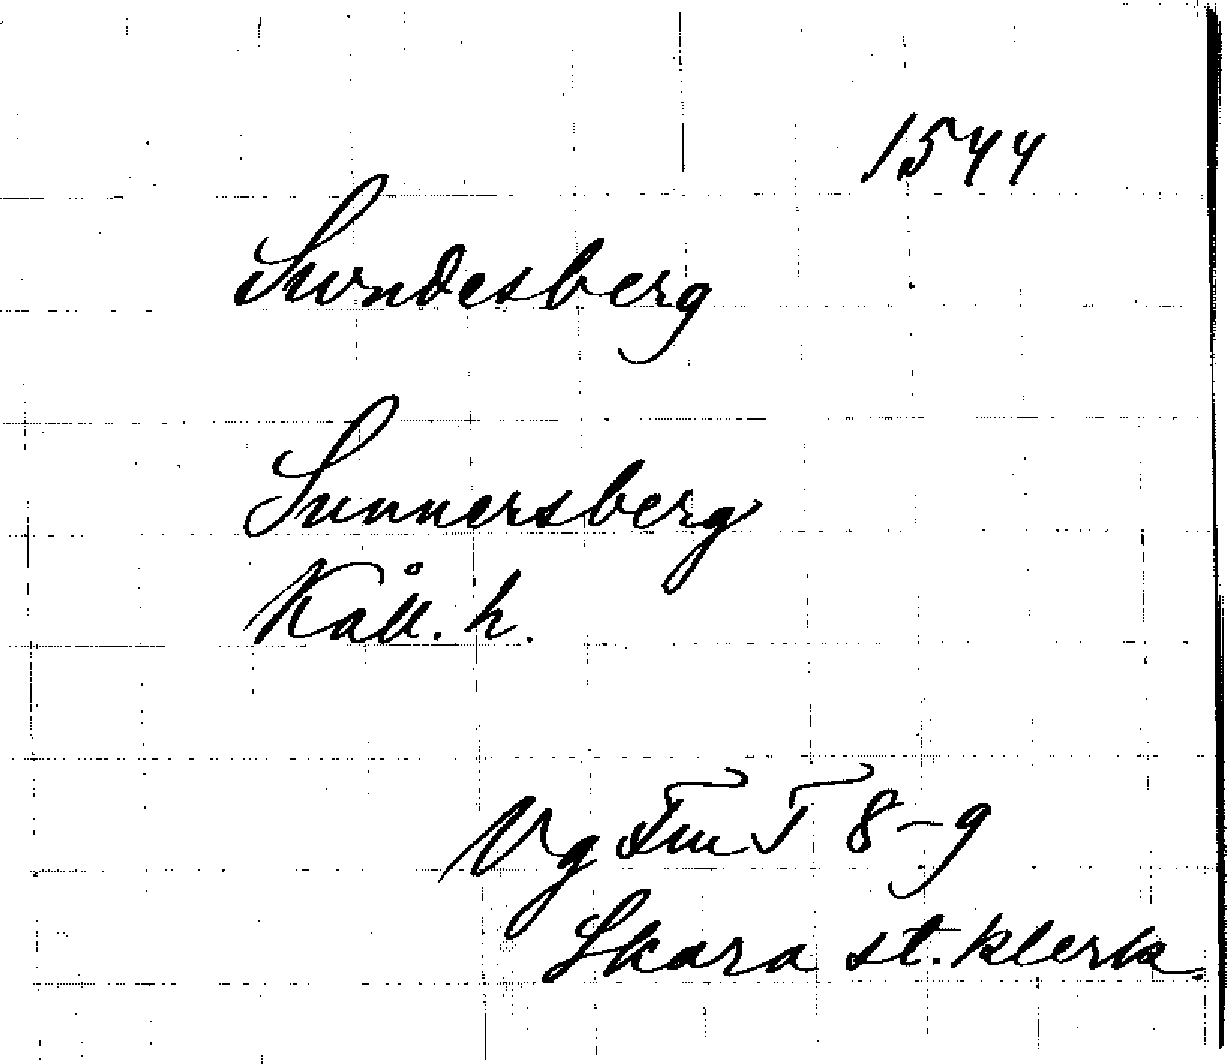 1544
Swndesberg
Sunnersberg
Kåll. h.
Vg Fm T 8-9
Skara st. klerk.